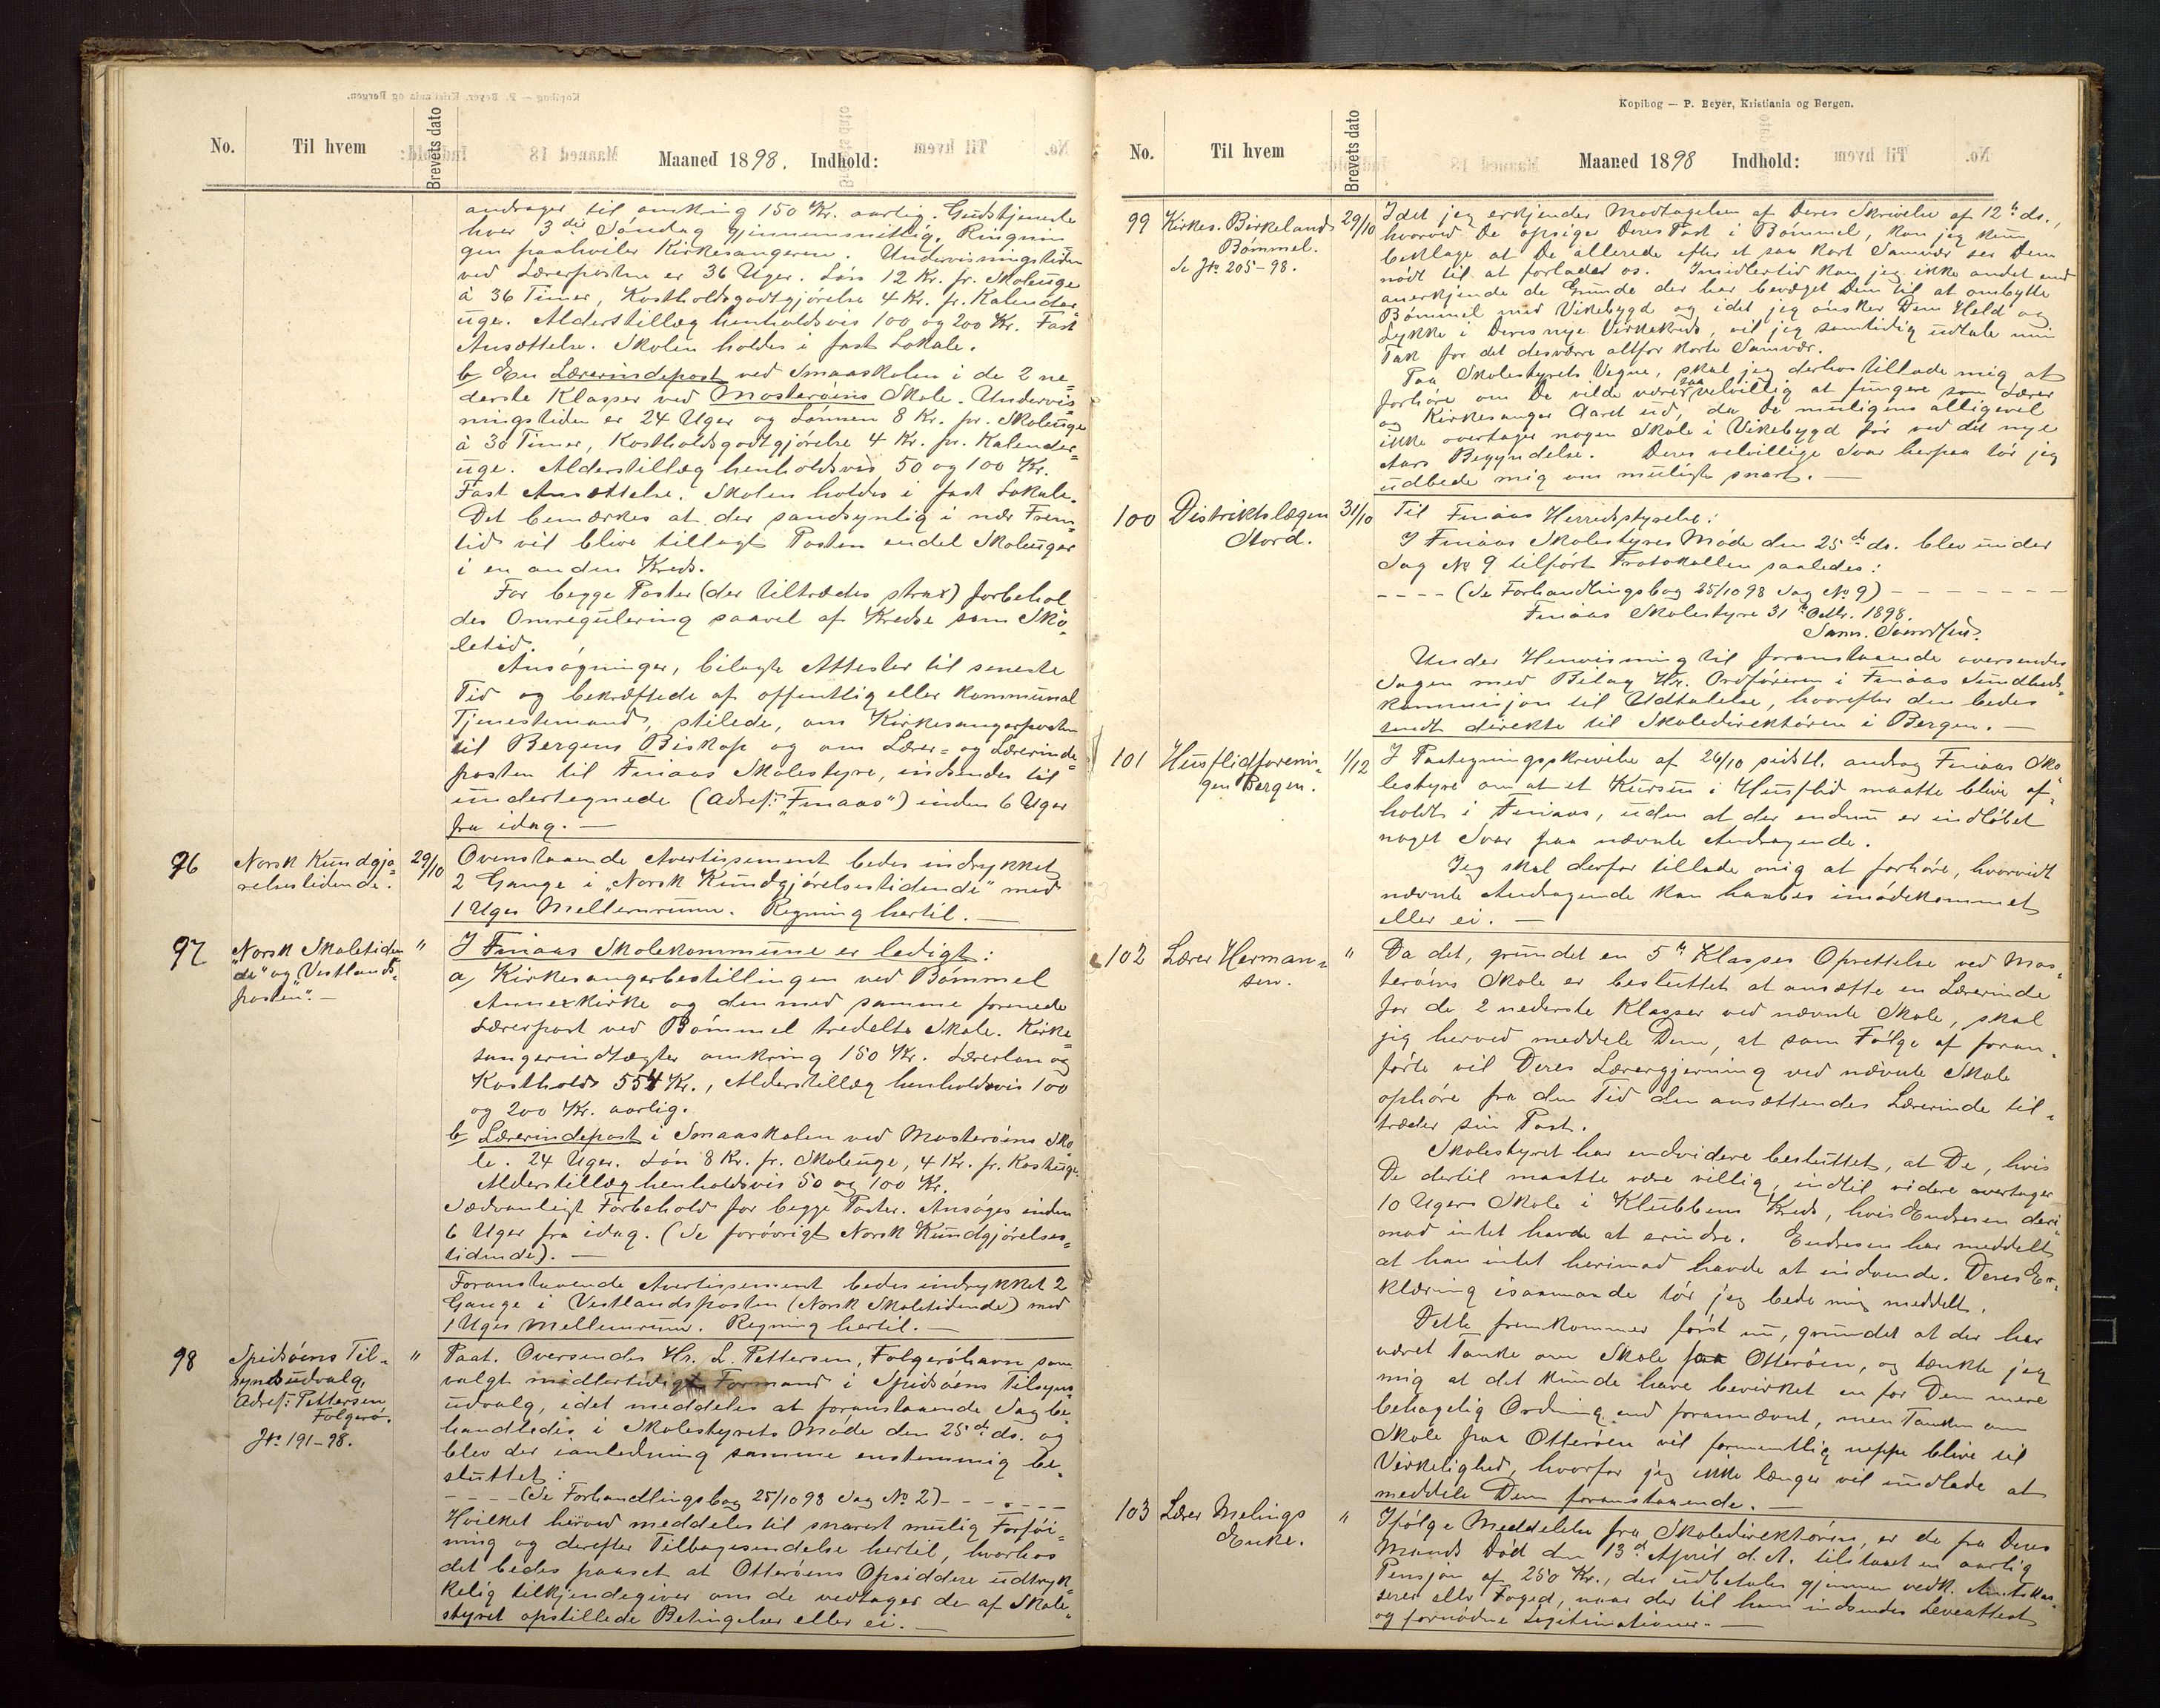 No. Til hvem Brevets dato Maaned 1898. Indhold:
andrager til omkring 150 Kr. aarlig. Gudstjeneste
hver 3die Søndag gjennemsnittlig. Ringnin
gen paahviler Kirkesangeren. Undervisningstiden
ved Lærerposten er 36 Uger. Løn 12 Kr. pr. Skoleuge
à 36 Timer, Kostholdsgodtgjørelse 4 Kr. pr. Kalender
uge. Alderstillæg henholdsvis 100 og 200 Kr. Fast
Ansættelse. Skolen holdes i fast Lokale.
b En Lærerindepost ved Smaaskolen i de 2 ne=
derste Klasser ved Mosterøens Skole. Undervis=
ningstiden er 24 Uger og Lønnen 8 Kr. pr. Skoleuge
à 30 Timer, Kostholdsgodtgjørelse 4 Kr. pr. Kalender=
uge. Alderstillæg henholdsvis 50 og 100 Kr.
Fast Ansættelse. Skolen holdes i fast Lokale.
Det bemærkes at der sandsynlig i nær Frem=
tid vil blive tillagt Posten endel Skoleuger
i en anden Kreds.
For begge Poster (der tiltrædes strax) forbehol
des Omregulering saavel af Kredse som Sko=
letid.
Ansøgninger, bilagte Attester til seneste
Tid og bekræftede af offentlig eller kommunal
Tjenestemand, stilede, om Kirkesangerposten
til Bergens Biskop og om Lærer= og Lærerinde=
posten til Finaas Skolestyre, indsendes til
undertegnede (Adres: "Finaas") inden 6 Uger
fra idag. —
96 Norsk Kundgjø=
relsestidende.
29/10
Ovenstaaende Avertissement bedes indrykket
2 Gange i "Norsk Kundgjørelsestidende" med
1 Uges Mellemrum. Regning hertil. —
97 "Norsk Skoletiden
de" og Vestlands=
posten". —
"
I Finaas Skolekommune er ledigt:
a, Kirkesangerbestillingen ved Bømmel
Annexkirke og den med samme forenede
Lærerpost ved Bømmel tredelte Skole. Kirke=
sangerindtægter omkring 150 Kr. Lærerløn og
Kosthold 554 Kr., Alderstillæg henholdsvis 100
og 200 Kr. aarlig.
b Lærerindepost i Smaaskolen ved Mosterøens Sko
le. 24 Uger. Løn 8 Kr. pr. Skoleuge, 4 Kr. pr. Kostuge.
Alderstillæg henholdsvis 50 og 100 Kr.
Sædvanligt Forbehold for begge Poster. Ansøges inden
6 Uger fra idag. (Se forøvrigt Norsk Kundgjørelses=
tidende). —
Foranstaaende Avertissement bedes indrykket 2
Gange i Vestlandsposten (Norsk Skoletidende) med
1 Uges Mellemrum. Regning hertil. —
98 Spidsøens Til=
synsudvalg,
Adres: Pettersen,
Folgerø.
Jr. 191–98.
"
Paat. Oversendes Hr. L. Pettersen, Folgerøhavn som
valgt midlertidigt Formand i Spidsøens Tilsyns=
udvalg, idet meddeles at foranstaaende Sag be=
handledes i Skolestyrets Møde den 25de ds. og
blev der i anledning samme enstemmig be=
sluttet:
– – – – (Se Forhandlingsbog 25/10 98 Sag No 2) – – – – –
Hvilket herved meddeles til snarest mulig Forføi=
ning og derefter Tilbagesendelse hertil, hvorhos
det bedes paaset at Otterøens Opsiddere udtryk=
kelig tilkjendegiver om de vedtager de af Skole=
styret opstillede Betingelser eller ei. —
Kopibog — P. Beyer, Kristiania og Bergen.
No. Til hvem Brevets dato Maaned 1898 Indhold:
99 Kirkes. Birkeland
Bømmel.
Se Jr. 205–98.
29/10
Idet jeg erkjender Modtagelsen af Deres Skrivelse af 12te ds.,
hvorved De opsiger Deres Post i Bømmel, kan jeg kun
beklage at De allerede efter et saa kort Samvær ser Dem
nødt til at forlade os. Imidlertid kan jeg ikke andet end
anerkjende de Grunde der har bevæget Dem til at ombytte
Bømmel med Vikebygd og idet jeg ønsker Dem Held og
Lykke i Deres nye Virkekreds, vil jeg samtidig udtale min
Tak for det desværre altfor korte Samvær.
Paa Skolestyrets Vegne, skal jeg derhos tillade mig at
forhøre om De vilde være saa velvillig at fungere som Lærer
og Kirkesanger Aaret ud, da De muligens alligevel
ikke overtager nogen Skole i Vikebygd før ved det nye
Aars Begyndelse. Deres velvillige Svar herpaa tør jeg
udbede mig om muligt snart. —
100 Distriktslægen
Stord.
31/10
Til Finaas Herredsstyrelse:
I Finaas Skolestyres Møde den 25de ds. blev under
Sag No 9 tilført Protokollen saaledes:
– – – – (Se Forhandlingsbog 25/10 98 Sag No 9) – – – – – – –
Finaas Skolestyre 31te Octbr. 1898.
Under Henvisning til foranstaaende oversendes
Sagen med Bilag Hr. Ordføreren i Finaas Sundheds=
kommisjon til Udtalelse, hvorefter den bedes
sendt direkte til Skoledirektøren i Bergen. —
101 Husflidforenin=
gen Bergen.
1/12
I Paategningsskrivelse af 26/10 sidstl. androg Finaas Sko
lestyre om at et Kursus i Husflid maatte blive af=
holdt i Finaas, uden at der endnu er indløbet
noget Svar paa nævnte Andragende.
Jeg skal derfor tillade mig at forhøre, hvorvidt
nævnte Andragende kan haabes imødekommet
eller ei. —
102 Lærer Herman=
sen.
"
Da det, grundet en 5te Klasses Oprettelse ved Mos=
terøens Skole er besluttet at ansætte en Lærerinde
for de 2 nederste Klasser ved nævnte Skole, skal
jeg herved meddele Dem, at som Følge af foran=
førte vil Deres Lærergjerning ved nævnte Skole
ophøre fra den Tid den ansættendes Lærerinde til=
træder sin Post.
Skolestyret har endvidere besluttet, at De, hvis
De dertil maatte være villig, indtil videre overtager
10 Ugers Skole i Klubbens Kreds, hvis Endresen deri=
mod intet havde at erindre. Endresen har meddelt
at han intet herimod havde at indvende. Deres Er=
klæring isaamaade tør jeg bede mig meddelt.
Dette fremkommer først nu, grundet at der har
været Tanke om Skole paa Otterøen, og tænkte jeg
mig at det kunde have bevirket en for Dem mere
behagelig Ordning end forannævnt, men Tanken om
Skole paa Otterøen vil formentlig neppe blive til
Virkelighed, hvorfor jeg ikke længer vil undlade at
meddele Dem foranstaaende. —
103 Lærer Melings
Enke.
"
Ifølge Meddelelse fra Skoledirektøren, er de fra Deres
Mands Død den 13de April d. A. tilstaaet en aarlig
Pensjon af 250 Kr., der udbetales gjennem vedk. Amtskas=
serer eller Foged, naar der til ham indsendes Leveattest
og fornødne Legitimationer. —